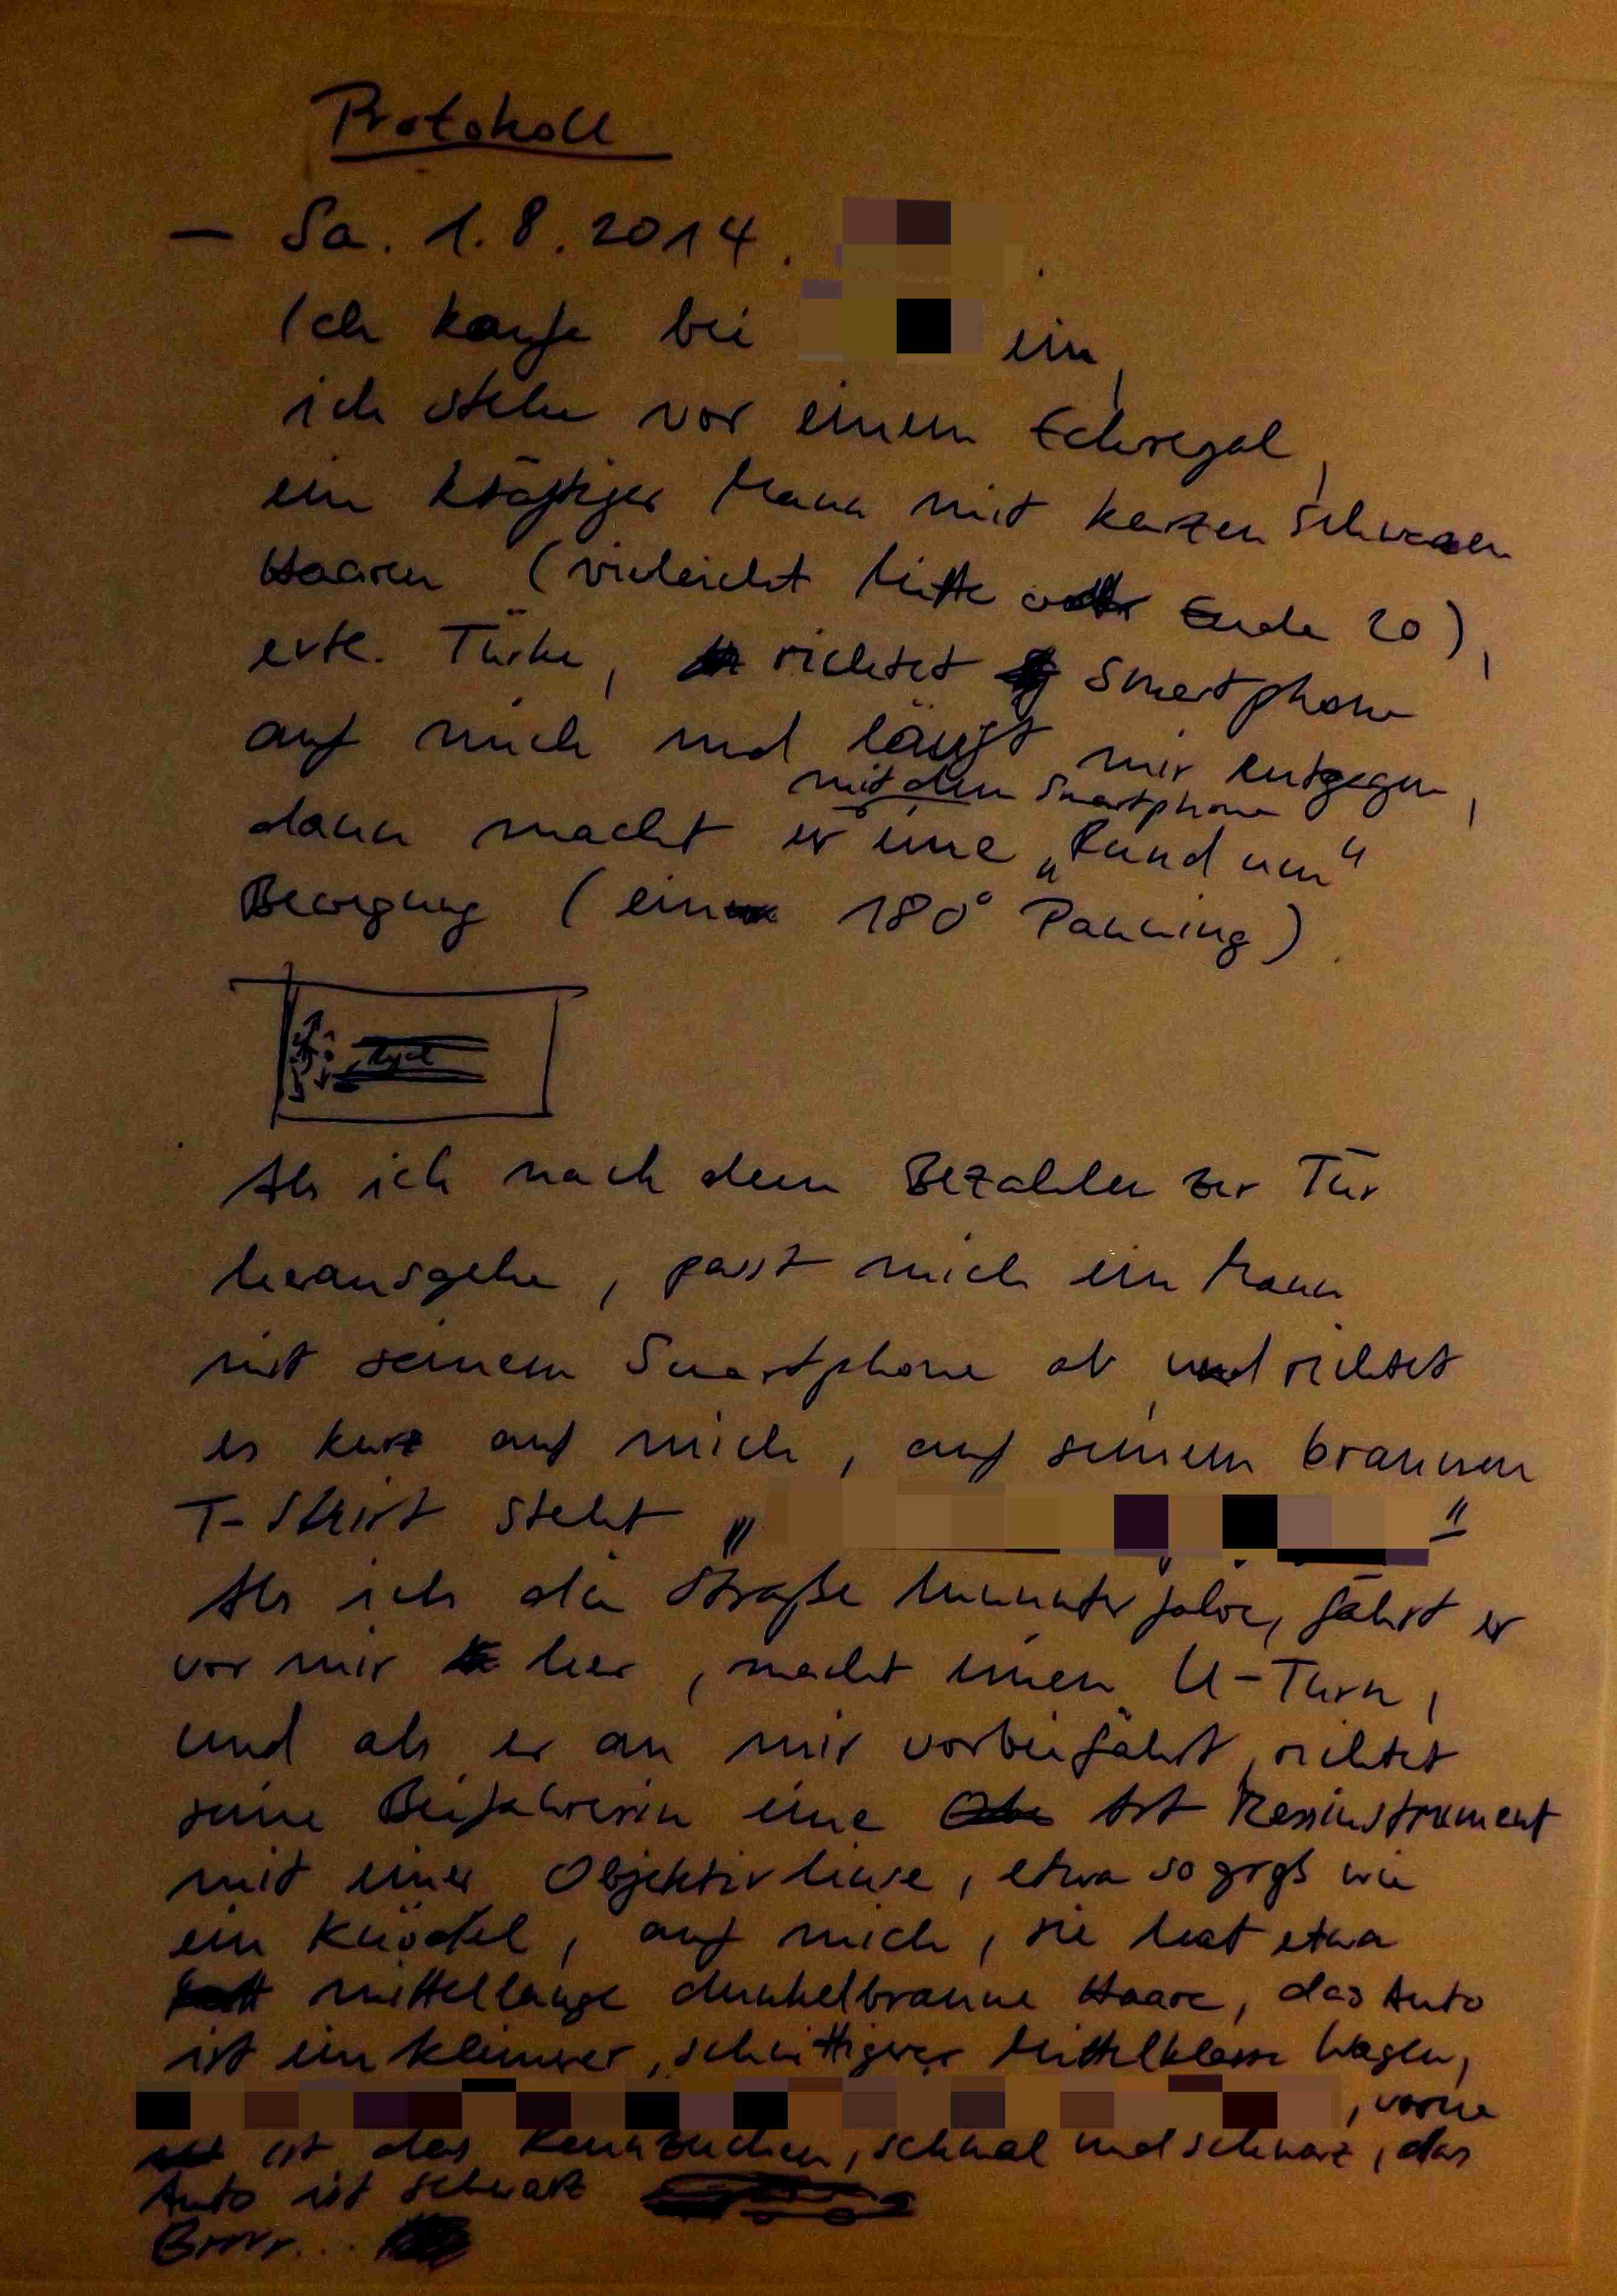 Protokoll
— Sa. 1.8.2014.
Ich kaufe bei ein,
ich stehe vor einem Eckregal,
ein kräftiger Mann mit kurzen schwarzen
Haaren (vieleicht Mitte oder Ende 20),
evtl. Türke, richtet Smartphone
auf mich und läuft mir entgegen,
mit dem Smartphone
dann macht er eine „Rund um“
Bewegung (ein 180° Panning).
Regal
Als ich nach dem Bezahlen zur Tür
herausgehe, passt mich ein Mann
mit seinem Smartphone ab und richtet
es kurz auf mich, auf seinem braunen
T-Shirt steht „ “
Als ich die Straße hinunter fahre, fährt er
vor mir her, macht einen U-Turn,
und als er an mir vorbeifährt, richtet
seine Beifahrerin eine Art Messinstrument
mit einer Objektivlinse, etwa so groß wie
ein Knödel, auf mich, sie hat etwa
mittellange dunkelbraune Haare, das Auto
ist ein kleinerer, schnittigerer Mittelklasse Wagen,
, vorne
ist das Kennzeichen, schmal und schwarz, das
Auto ist schwarz
Brrrr...